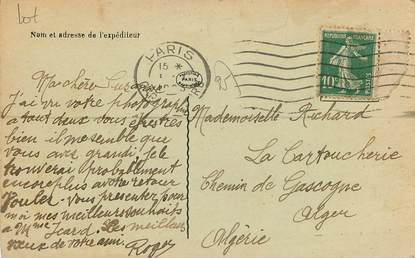 lot
Nom et adresse de l'expéditeur
PARIS
15
REPUBLIQUE FRANÇAISE
10c
POSTES
Ma chère
J'ai vu votre photographie
à tout deux vous êtes très
bien il me semble que
vous avez grandi je le
trouverai probablement
encore plus à votre retour
Voulez-vous présenter pour
moi mes meilleurs souhaits
à Mme Icard. Les meilleurs
vœux de votre ami.
Roger
Mademoiselle Richard
La Cartoucherie
Chemin de Gascogne
Alger
Algérie